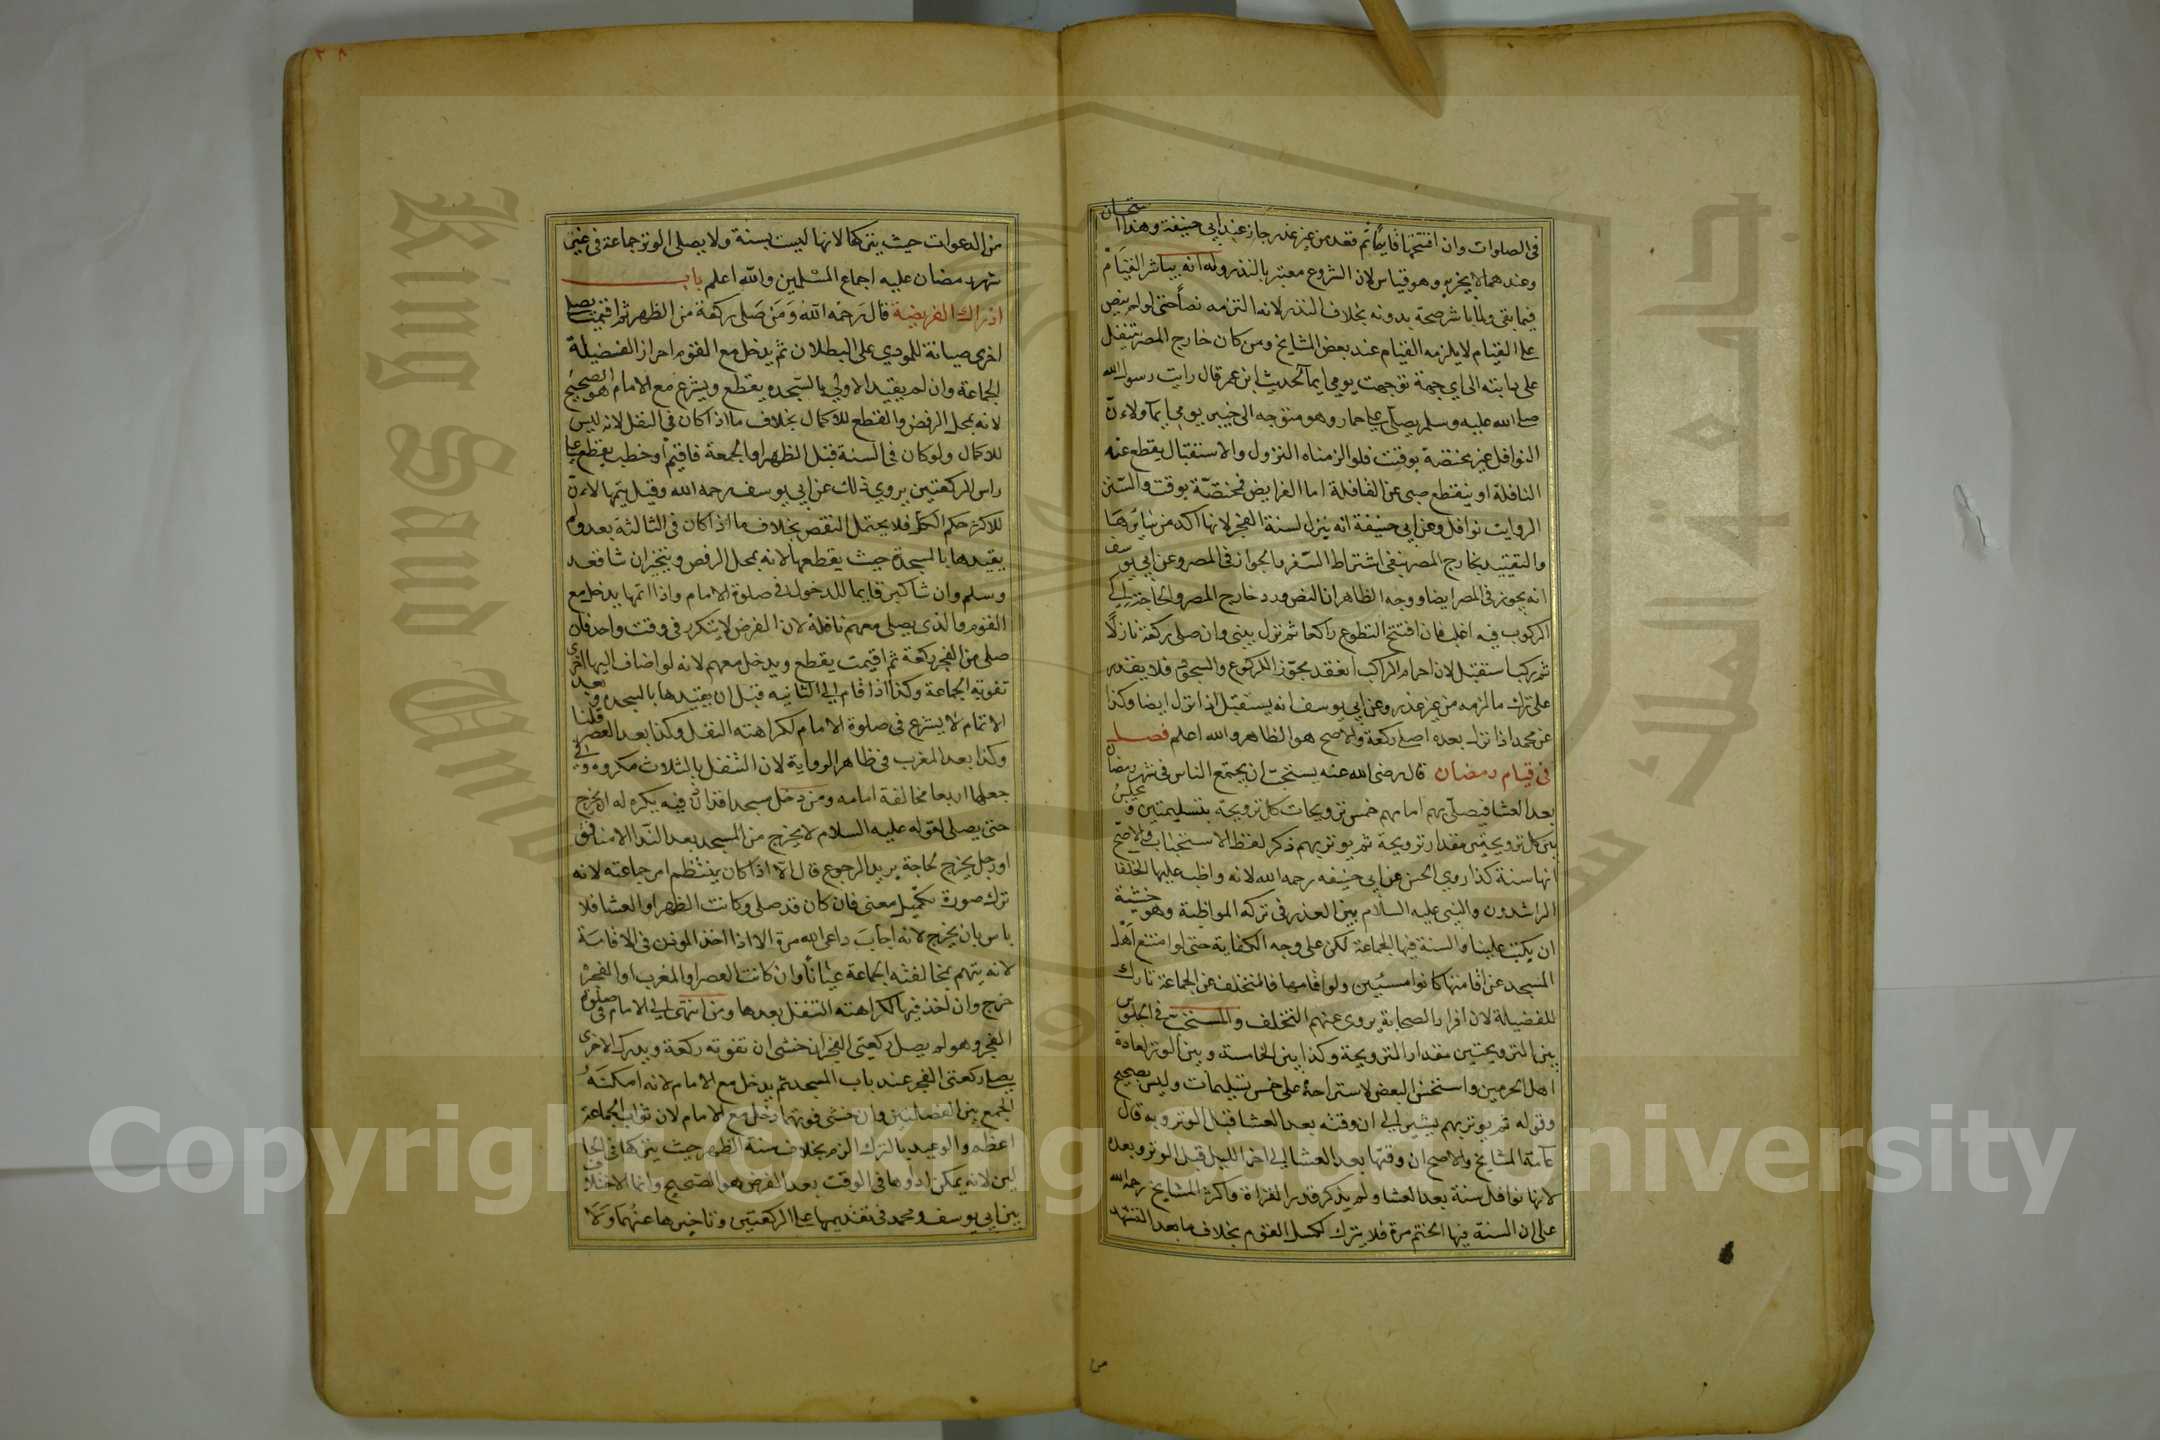 في الصلوات وان افتتحها قايما ثم قعد من غير عذر جاز عند ابي حنيفة وهذا استحسان
وعندهما لا يجزيه وهو قياس لان الشروع معتبر بالنذر وله انه يباشر القيام
فيما بقى ولما باشر صحة بدونه بخلاف النذر لانه التزمه نصا حتى لو لم ينص
على القيام لا يلزمه القيام عند بعض المشايخ ومن كان خارج المصر يتنفل
على دابته الى اي جهة توجهت يومي ايمآ لحديث ابن عمر قال رايت رسول الله
صلى الله عليه وسلم يصلي على حمار وهو متوجه الى خيبر يومي ايمآ ولان
النوافل غير مختصة بوقت فلو الزمناه النزول والاستقبال يقطع عنه
النافلة او ينقطع هى عن القافلة اما الفرايض فمختصة بوقت والسنن
الرواتب نوافل وعن ابي حنيفة انه ينزل لسنة الفجر لانها اكد من سائرها
والتقييد بخارج المصر ينفى اشتراط السفر والجواز في المصر وعن ابي يوسف
انه يجوز في المصر ايضا ووجه الظاهر ان النص ورد خارج المصر والحاجة الى
الركوب فيه اغلب فان افتتح التطوع راكبا ثم نزل يبنى وان صلى ركعة نازلا
ثم ركب استقبل لان احرام الراكب انعقد مجوزا للركوع والسجود فلا يقدر
على ترك ما لزمه من غير عذر وعن ابي يوسف انه يستقبل اذا نزل ايضا وكذا
عن محمد اذا نزل بعده اصلى ركعة والاصح هو الظاهر والله اعلم فصل
في قيام رمضان قال رضى الله عنه يستحب ان يجتمع الناس في شهر رمضان
بعد العشا فيصلي بهم امامهم خمس ترويحات كل ترويحة بتسليمتين ويجلس
بين كل ترويحتين مقدار ترويحة ثم يوتر بهم ذكر لفظ الاستحباب والاصح
انها سنة كذا روى الحسن عن ابي حنيفه رحمه الله لانه واظب عليها الخلفا
الراشدون والنبي عليه السلام بين العذر في تركه المواظبة وهو خشية
ان يكتب علينا والسنة فيها الجماعة لكن على وجه الكفاية حتى لو امتنع اهل
المسجد عن اقامتها كانوا مسيئين ولو اقامها فالمتخلف عن الجماعة تارك
للفضيلة لان افراد الصحابة يروى عنهم التخلف والمستحب في الجلوس
بين الترويحتين مقدار الترويحة وكذا بين الخامسة وبين الوتر لعادة
اهل الحرمين واستحسن البعض لاستراحة على خمس تسليمات وليس بصحيح
وقوله ثم يوتر بهم يشير الى ان وقته بعد العشا قبل الوتر وبه قال
عامة المشايخ والاصح ان وقتها بعد العشا الى اخر الليل قبل الوتر وبعده
لانها نوافل سنة بعد العشا ولم يذكر قدر القراة فاكثر المشايخ رحمه الله
على ان السنة فيها الختم مرة فلا يترك لكسل القوم بخلاف ما بعد التشهد
من
٣٨
من الدعوات حيث يتركها لانها ليست بسنة ولا يصلى الوتر جماعة في غير
شهر رمضان عليه اجماع المسلمين والله اعلم باب
ادراك الفريضة قال رحمه الله ومن صلى ركعة من الظهر ثم اقيمت يصلى
اخرى صيانة للمودي على البطلان ثم يدخل مع القوم احراز الفضيلة
الجماعة وان لم يقيد الاولى بالسجده يقطع ويشرع مع الامام هو الصحيح
لانه بمحل الرفض والقطع للاكمال بخلاف ما اذا كان في النفل لانه ليس
للاكمال ولو كان في السنة قبل الظهر او الجمعة فاقيم او خطب يقطع على
راس الركعتين يروي ذلك عن ابي يوسف رحمه الله وقيل يتمها لان
للاكثر حكم الكل فلا يحتمل النقص بخلاف ما اذا كان في الثالثة بعد ولم
يقيدها بالسجدة حيث يقطعها لانه بمحل الرفض ويتخير ان شا قعد
وسلم وان شا كبر قايما للدخول في صلوة الامام واذا اتمها يدخل مع
القوم والذى يصلى معهم نافلة لان الفرض لا يتكرر في وقت واحد فان
صلى من الفجر ركعة ثم اقيمت يقطع ويدخل معهم لانه لو اضاف اليها اخرى
تفوته الجماعة وكذا اذا قام الى الثانيه قبل ان يقيدها بالسجده وبعد
الاتمام لا يشرع في صلوة الامام لكراهته النفل وكذا بعد العصر لما قلنا
وكذا بعد المغرب في ظاهر الرواية لان التنفل بالثلاث مكروه وفى
جعلها اربعا مخالفة امامه ومن دخل مسجد اقد اذن فيه يكره له ان يخرج
حتى يصلى لقوله عليه السلام لا يخرج من المسجد بعد الندا الا منافق
او رجل يخرج لحاجة يريد الرجوع قال الا اذا كان ينتظم امر جماعته لانه
ترك صورة تكميل معنى فان كان قد صلى وكانت الظهر او العشا فلا
باس بان يخرج لانه اجاب داعى الله مرة الا اذا اخذ الموذن في الاقامة
لانه يتهم بمخالفته الجماعة عيانا وان كانت العصر او المغرب او الفجر
خرج وان اخذ فيها لكراهته التنفل بعدها ومن انتهى الى الامام في صلوة
الفجر وهو لم يصل ركعتى الفجر ان خشى ان تفوته ركعة ويدرك الاخرى
يصلى ركعتى الفجر عند باب المسجد ثم يدخل مع الامام لانه امكنه
الجمع بين الفضلتين وان خشى فوتهما دخل مع الامام لان ثواب الجماعة
اعظم والوعيد بالترك الزم بخلاف سنة الظهر حيث يتركها في الحا
لين لانه يمكن اداوها في الوقت بعد الفرض هو الصحيح وانما الاختلاف
بين ابي يوسف ومحمد في تقديمها على الركعتين وتاخيرها عنهما ولا
جامعة الملك سعود
King Saud University
1957
Copyright © King Saud University